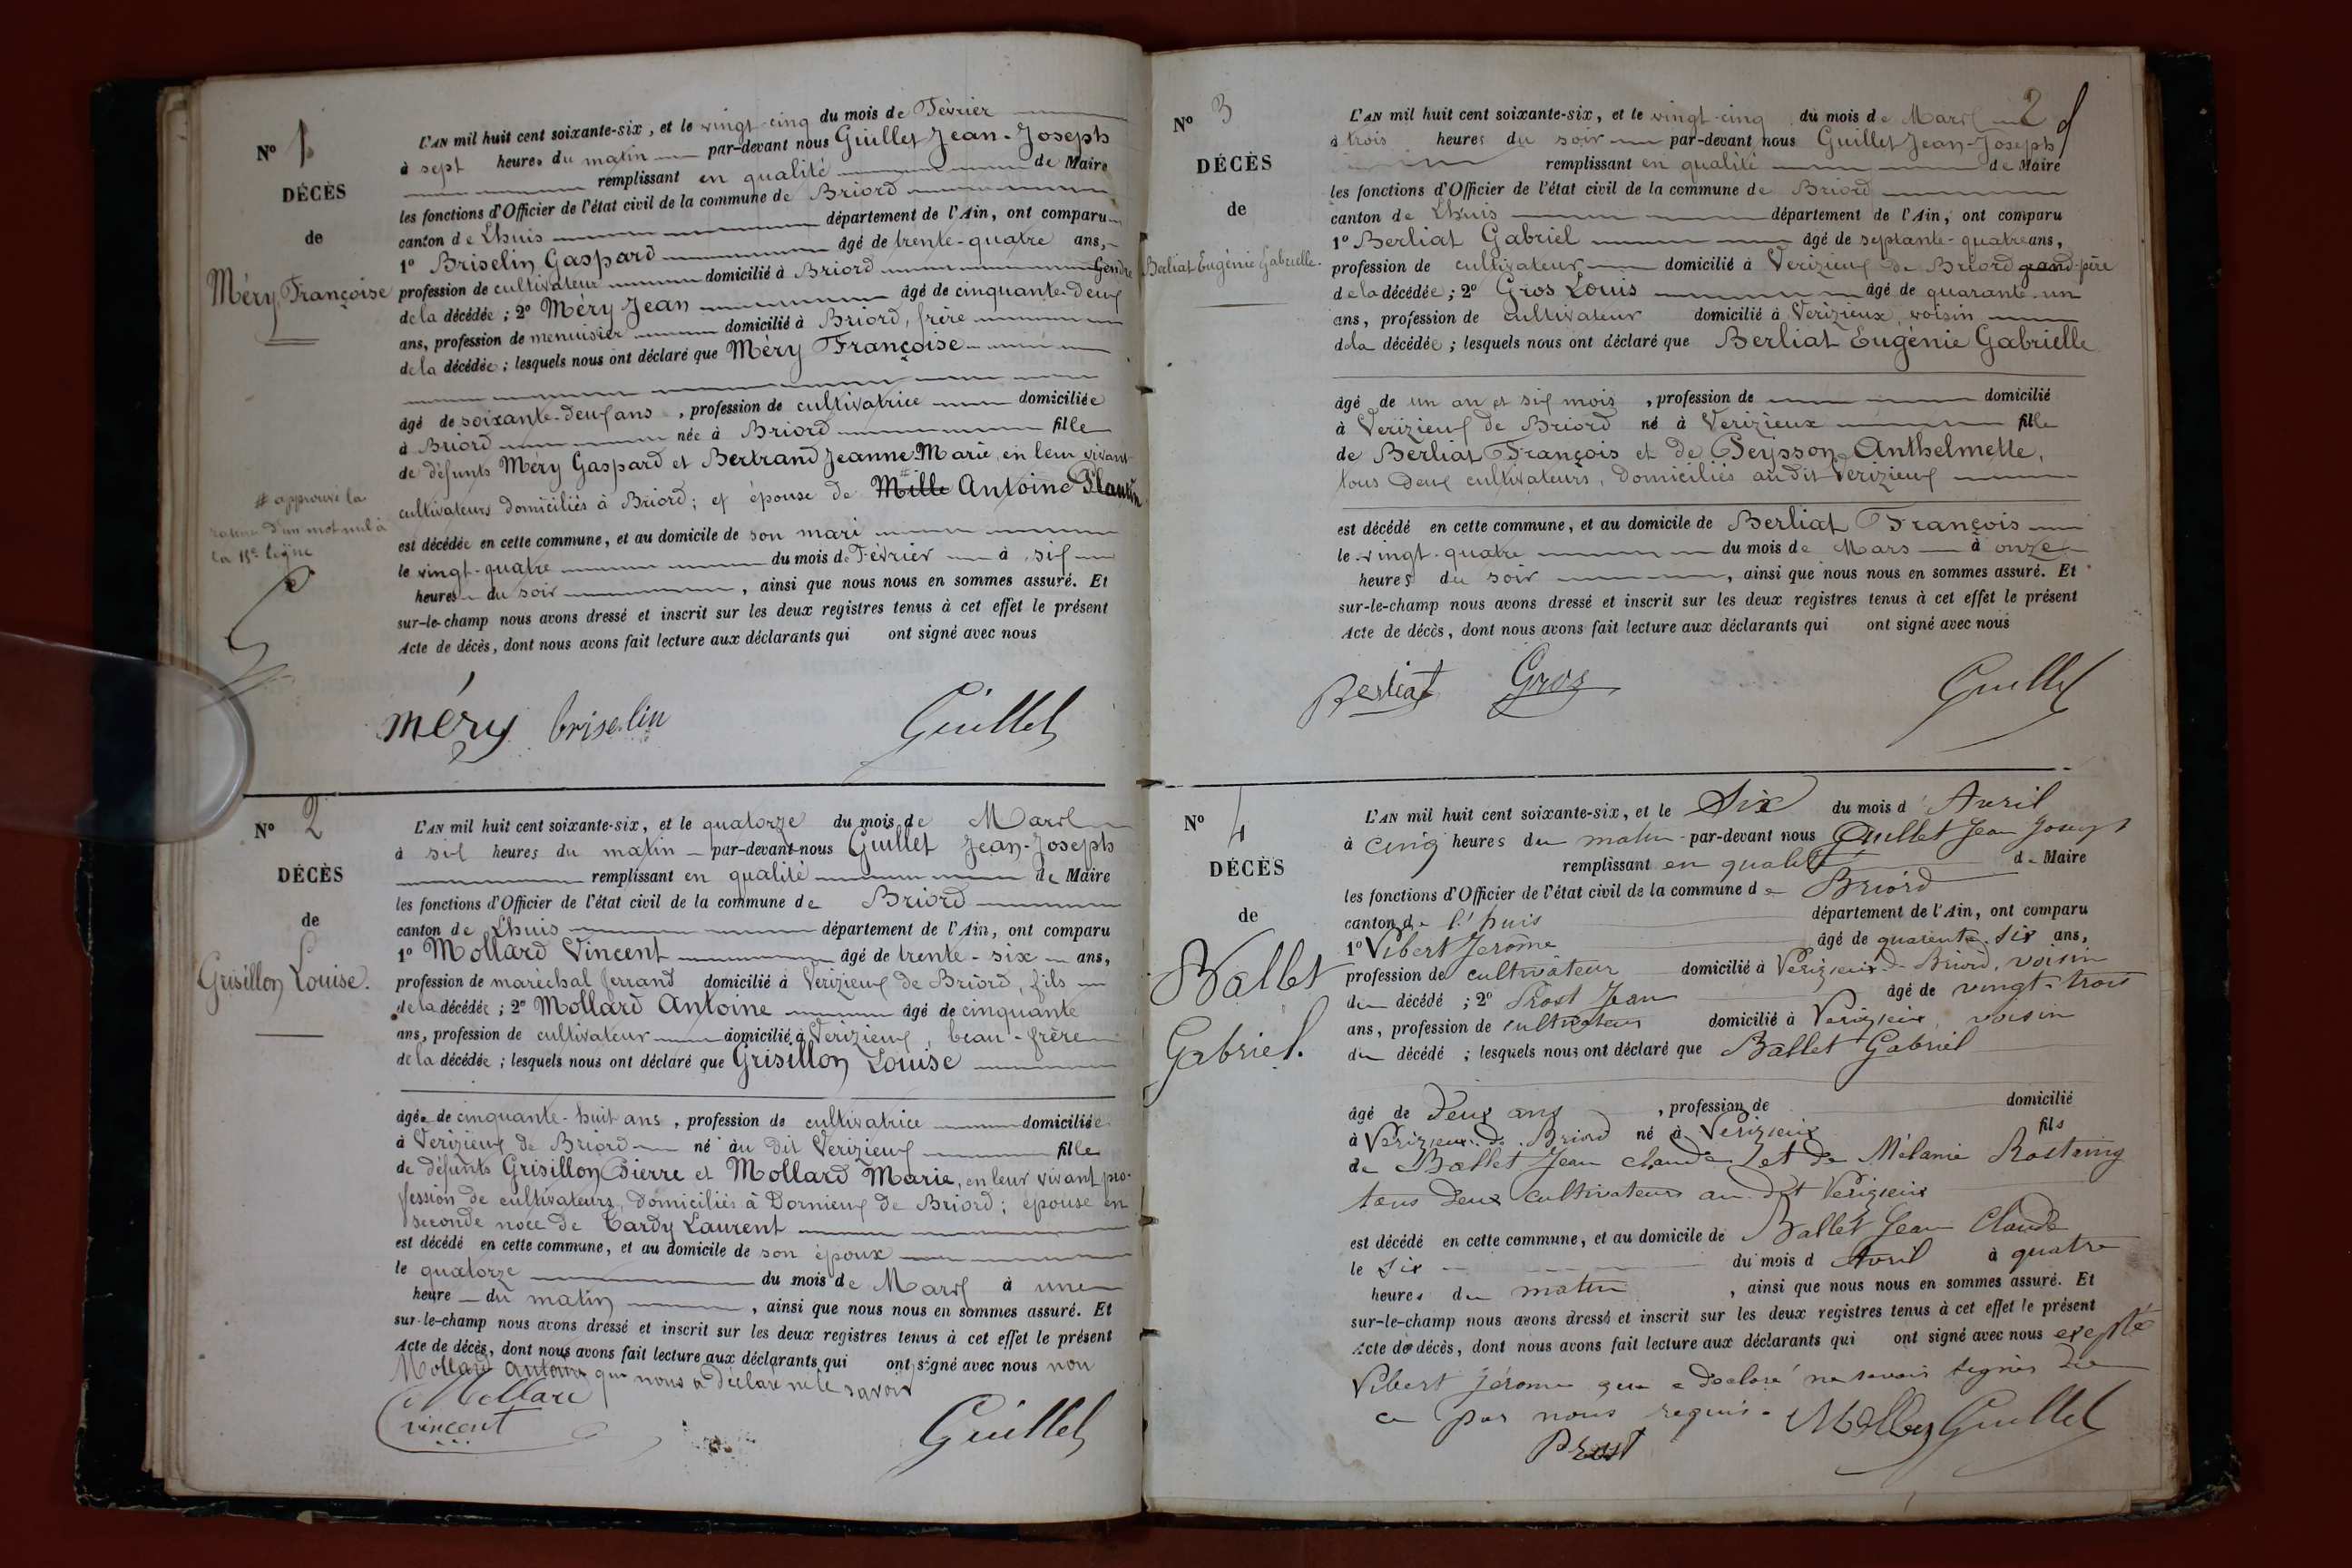 N° 1
DÉCÈS
de
Méry Françoise
# approuvé la
rature d'un mot nul à
la 15e ligne
L'AN mil huit cent soixante-six, et le vingt-cinq du mois de Février
à sept heures du matin par-devant nous Guillet Jean-Joseph
remplissant en qualité de Maire
les fonctions d'Officier de l'état civil de la commune de Briord
canton de Lhuis département de l'Ain, ont comparu
1° Briselin Gaspard âgé de trente-quatre ans,
profession de cultivateur domicilié à Briord Gendre
de la décédée ; 2° Méry Jean âgé de cinquante-deux
ans, profession de menuisier domicilié à Briord, frère
de la décédée ; lesquels nous ont déclaré que Méry Françoise
âgé de soixante-deux ans, profession de cultivatrice domiciliée
à Briord née à Briord fille
de défunts Méry Gaspard et Bertrand Jeanne-Marie, en leur vivant
cultivateurs domiciliés à Briord ; et épouse de # Mille Antoine Plantin
est décédée en cette commune, et au domicile de son mari
le vingt-quatre du mois de Février à six
heures du soir, ainsi que nous nous en sommes assuré. Et
sur-le-champ nous avons dressé et inscrit sur les deux registres tenus à cet effet le présent
Acte de décès, dont nous avons fait lecture aux déclarants qui ont signé avec nous
méry briselin Guillet
N° 2
DÉCÈS
de
Grisillon Louise.
L'AN mil huit cent soixante-six, et le quatorze du mois de Mars
à six heures du matin par-devant nous Guillet Jean-Joseph
remplissant en qualité de Maire
les fonctions d'Officier de l'état civil de la commune de Briord
canton de Lhuis département de l'Ain, ont comparu
1° Mollard Vincent âgé de trente-six ans,
profession de maréchal ferrand domicilié à Verizieux de Briord, fils
de la décédée ; 2° Mollard Antoine âgé de cinquante
ans, profession de cultivateur domicilié à Verizieux, beau-frère
de la décédée ; lesquels nous ont déclaré que Grisillon Louise
âgée de cinquante-huit ans, profession de cultivatrice domiciliée
à Verizieux de Briord né au dit Verizieux fille
de défunts Grisillon Pierre et Mollard Marie, en leur vivant pro-
fession de cultivateurs, domiciliés à Dornieux de Briord ; épouse en
seconde noce de Tardy Laurent
est décédé en cette commune, et au domicile de son époux
le quatorze du mois de Mars à une
heure du matin, ainsi que nous nous en sommes assuré. Et
sur-le-champ nous avons dressé et inscrit sur les deux registres tenus à cet effet le présent
Acte de décès, dont nous avons fait lecture aux déclarants qui ont signé avec nous non
Mollard Antoine qui nous a déclaré ne le savoir
Mollard
vincent Guillet
2
N° 3
DÉCÈS
de
Berliat Eugénie Gabrielle.
L'AN mil huit cent soixante-six, et le vingt-cinq du mois de Mars
à trois heures du soir par-devant nous Guillet Jean-Joseph
remplissant en qualité de Maire
les fonctions d'Officier de l'état civil de la commune de Briord
canton de Lhuis département de l'Ain, ont comparu
1° Berliat Gabriel âgé de septante-quatre ans,
profession de cultivateur domicilié à Verizieux de Briord grand-père
de la décédée ; 2° Gros Louis âgé de quarante-un
ans, profession de cultivateur domicilié à Verizieux, voisin
de la décédée ; lesquels nous ont déclaré que Berliat Eugénie Gabrielle
âgé de un an et six mois, profession de domicilié
à Verizieux de Briord né à Verizieux fille
de Berliat François et de Peysson Anthelmette,
tous deux cultivateurs, domiciliés au dit Verizieux
est décédé en cette commune, et au domicile de Berliat François
le vingt-quatre du mois de Mars à onze
heures du soir, ainsi que nous nous en sommes assuré. Et
sur-le-champ nous avons dressé et inscrit sur les deux registres tenus à cet effet le présent
Acte de décès, dont nous avons fait lecture aux déclarants qui ont signé avec nous
Berliat Gros Guillet
N° 4
DÉCÈS
de
Ballet
Gabriel.
L'AN mil huit cent soixante-six, et le Six du mois d'Avril
à cinq heures du matin par-devant nous Guillet Jean Joseph
remplissant en qualité de Maire
les fonctions d'Officier de l'état civil de la commune de Briord
canton de l'huis département de l'Ain, ont comparu
1° Vibert Jerome âgé de quarente-six ans,
profession de cultivateur domicilié à Verizieux de Briord, voisin
du décédé ; 2° Prost Jean âgé de vingt-trois
ans, profession de cultivateur domicilié à Verizieux, voisin
du décédé ; lesquels nous ont déclaré que Ballet Gabriel
âgé de deux ans, profession de domicilié
à Verizieux de Briord né à Verizieux fils
de Ballet Jean Claude et de Mélanie Rostaing
tous deux cultivateurs au dit Verizieux
est décédé en cette commune, et au domicile de Ballet Jean Claude
le six du mois d Avril à quatre
heures du matin, ainsi que nous nous en sommes assuré. Et
sur-le-champ nous avons dressé et inscrit sur les deux registres tenus à cet effet le présent
Acte de décès, dont nous avons fait lecture aux déclarants qui ont signé avec nous excepté
Vibert Jérome qui a déclaré ne savoir signer de
ce par nous requis.
Prost Guillet